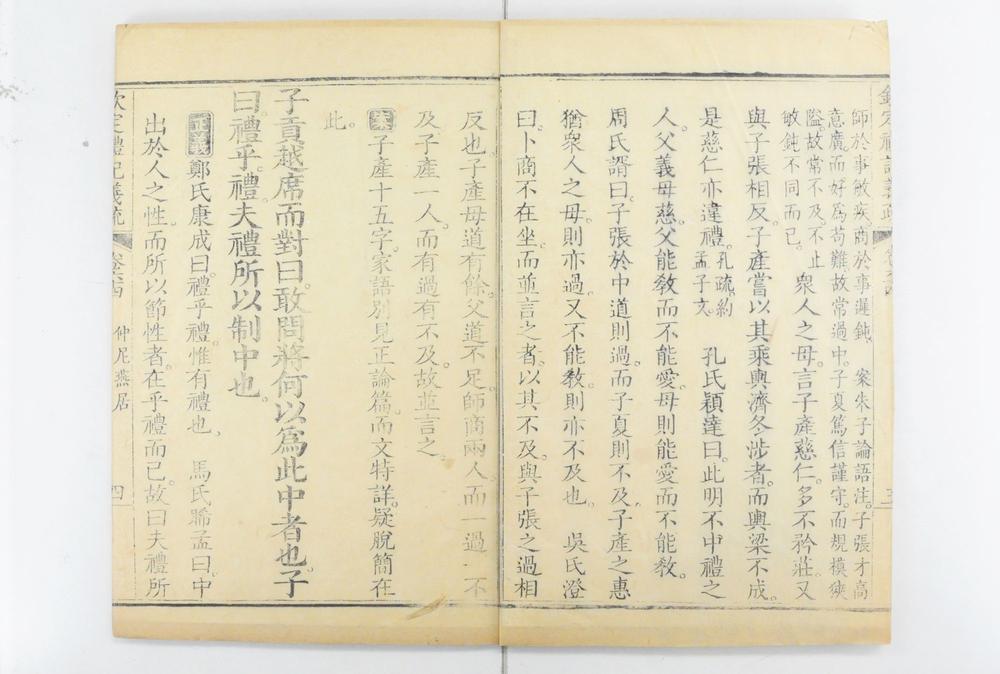 師於事敏疾商於事遲鈍　案朱子論語注子張才高
意廣而好為苟難故常過中子夏篤信謹守而規模狹
隘故常不及不止
敏鈍不同而已
衆人之母言子產慈仁多不矜莊又
與子張相反子產嘗以其乘輿濟冬涉者而輿梁不成
是慈仁亦違禮
孔疏約
孟子文
孔氏穎達曰此明不中禮之
人父義母慈父能敎而不能愛母則能愛而不能敎
周氏諝曰子張於中道則過而子夏則不及子產之惠
猶衆人之母則亦過又不能敎則亦不及也　吳氏澄
曰卜商不在坐而並言之者以其不及與子張之過相
反也子產母道有餘父道不足師商兩人而一過一不
及子產一人而有過有不及故並言之
案子產十五字家語別見正論篇而文特詳疑脫簡在
此
子貢越席而對曰敢問將何以為此中者也子
曰禮乎禮夫禮所以制中也
正義鄭氏康成曰禮乎禮惟有禮也　馬氏睎孟曰中
出於人之性而所以節性者在乎禮而已故曰夫禮所
欽定禮記義疏
仲尼燕居
四